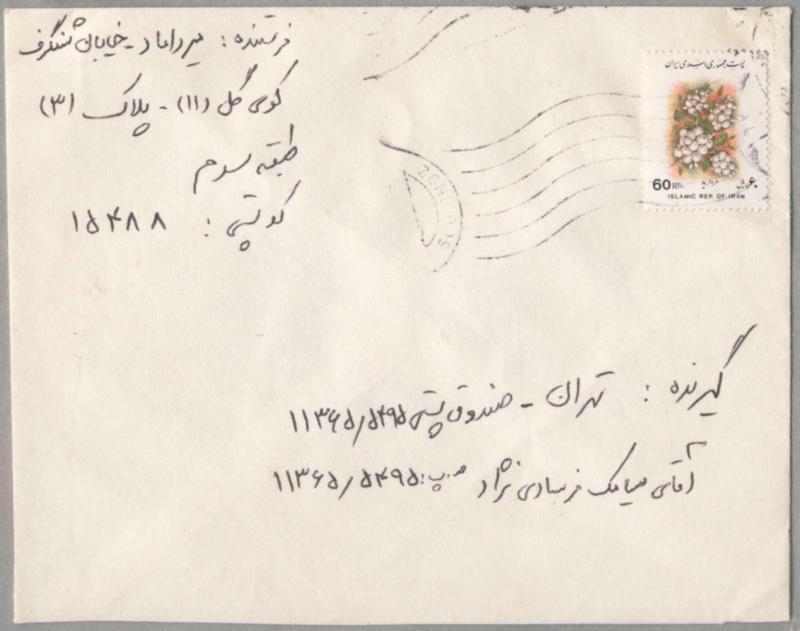 فرستنده : میرداماد - خیابان شنگرف
کوی گل (۱۱) - پلاک (۳)
طبقه سوم
کد پستی : ۱۵۴۸۸
پست جمهوری اسلامی ایران
60 RLS. مروارید ۶۰ ریال
ISLAMIC REP. OF IRAN
ZONE
گیرنده : تهران - صندوق پستی ۱۱۳۶۵/۵۴۹۵
آقای سیامک فرسادی نژاد ص.پ: ۱۱۳۶۵/۵۴۹۵